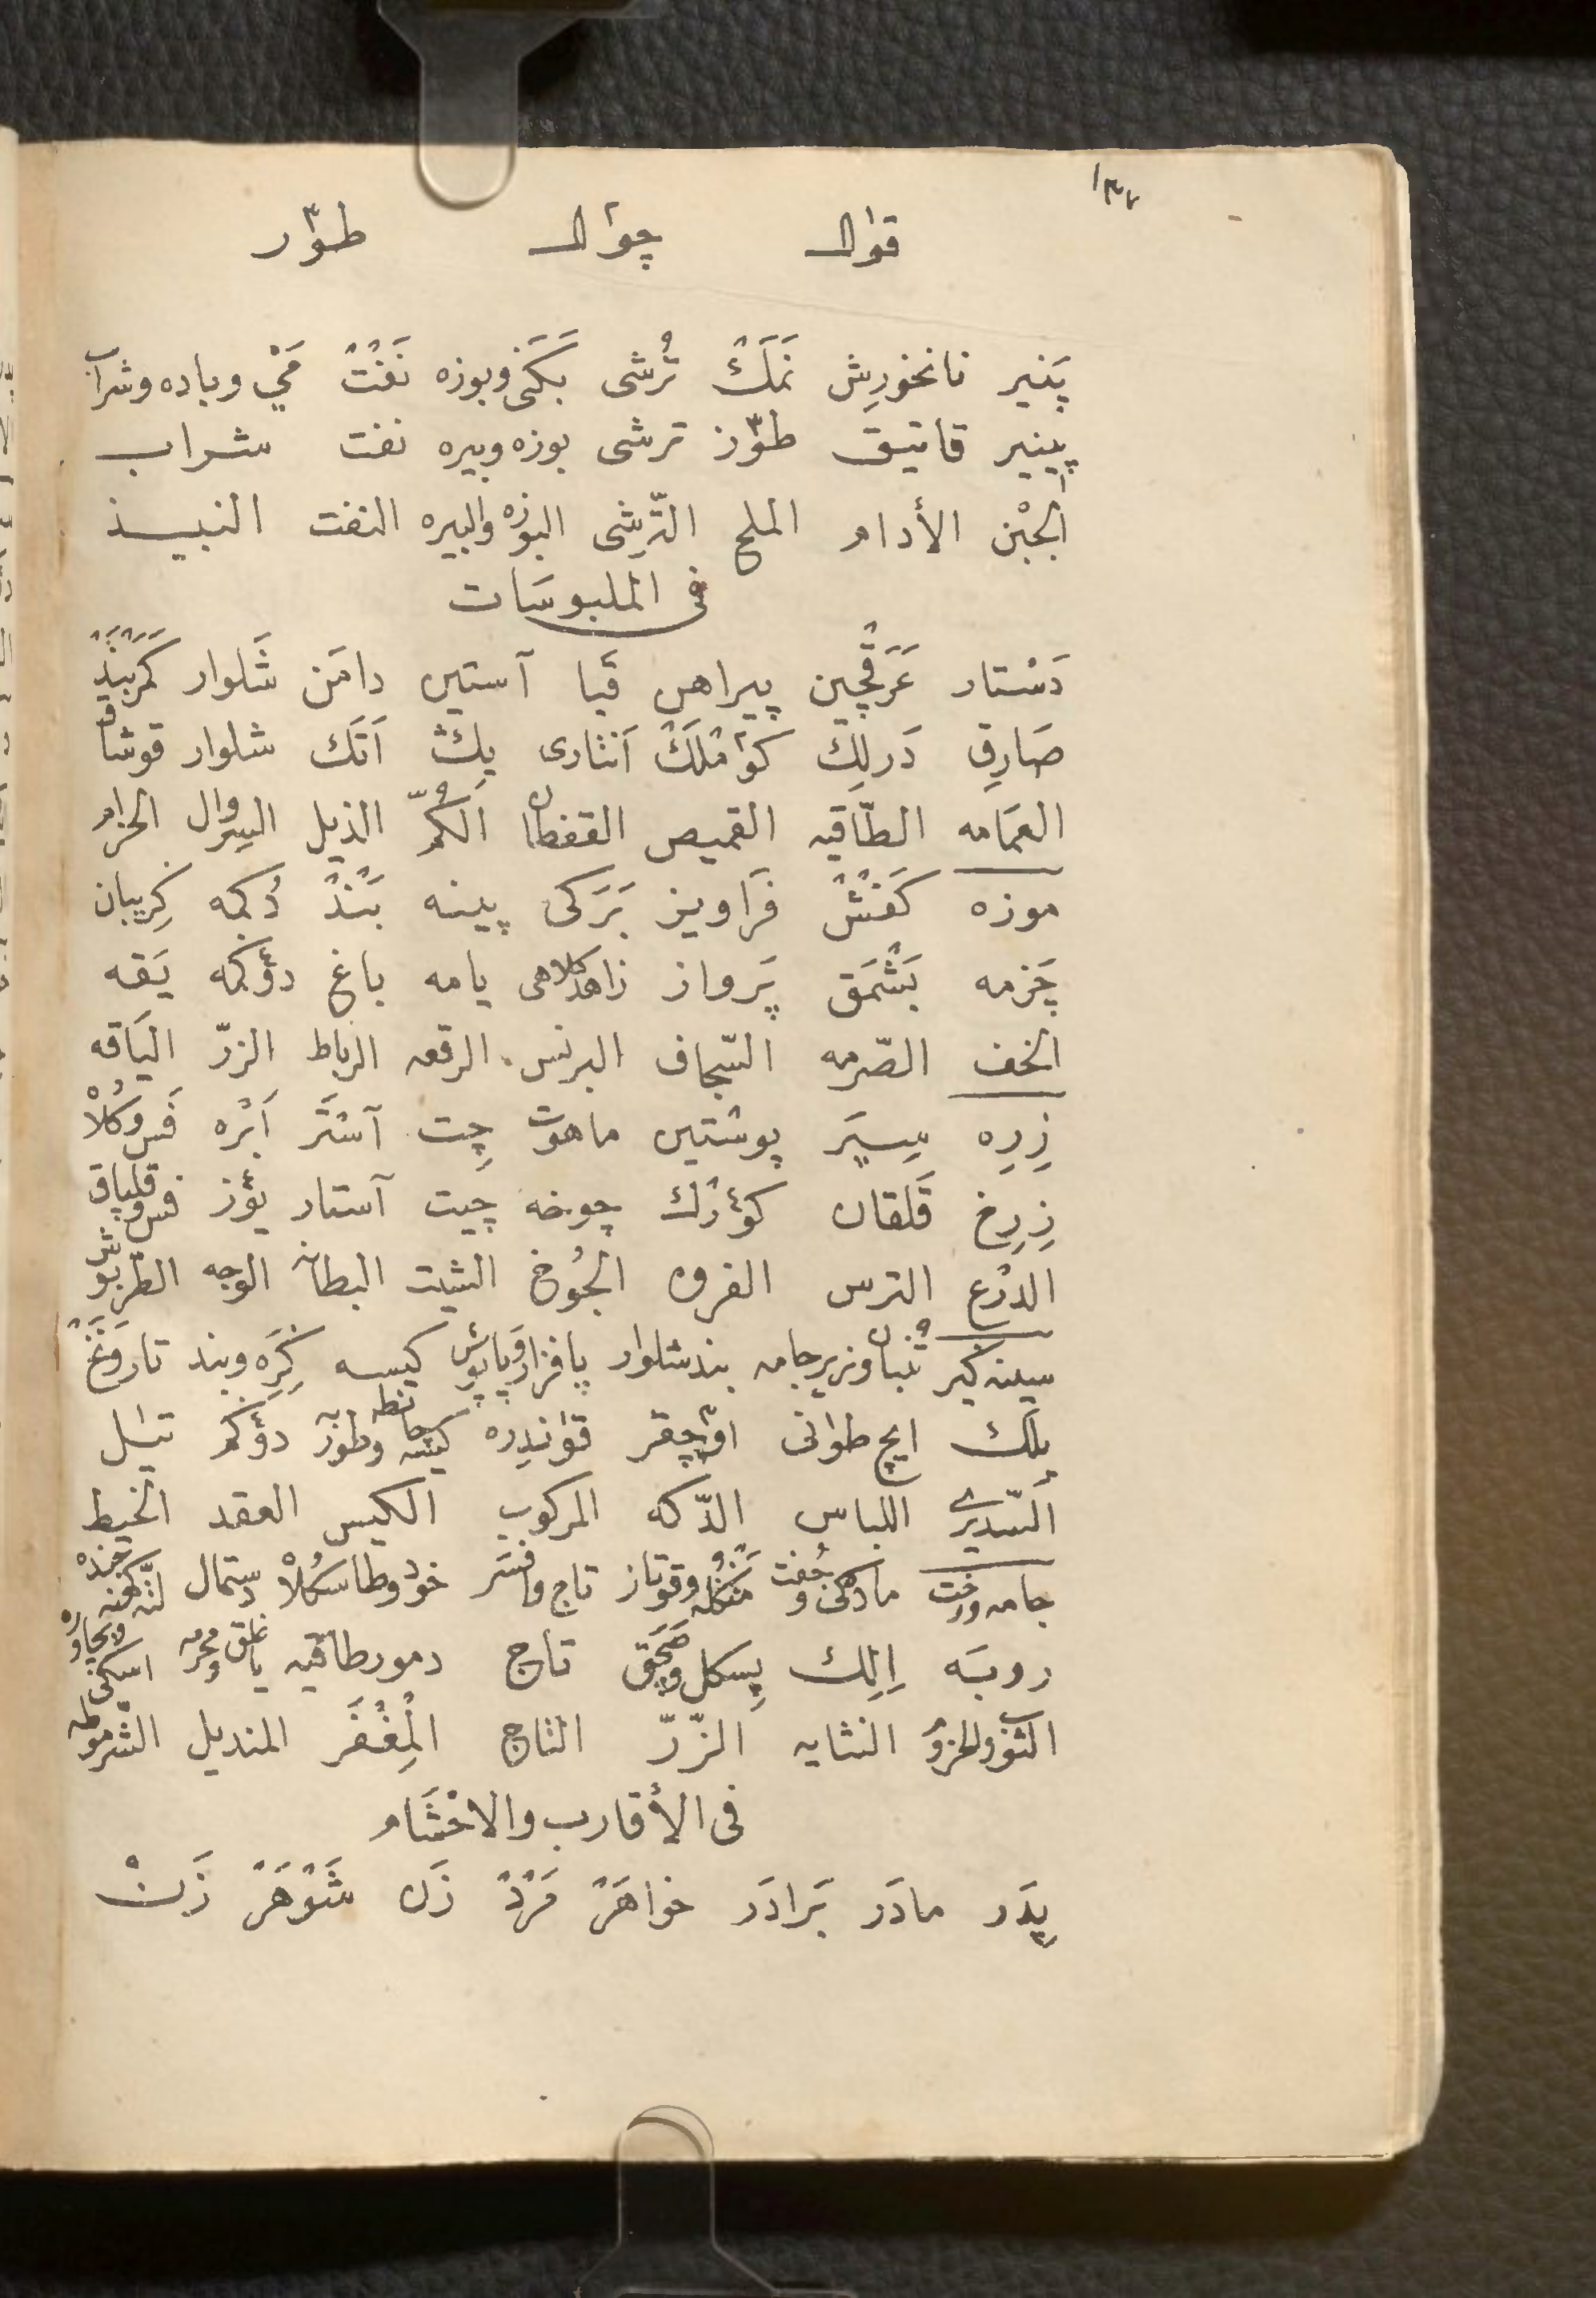 ١٣٧
قوال چوال طوار
پَنير نانخورِش نَمَكْ تُرْشى بَكَنى وبوزه نَفْتْ مَيْ وباده وشراب
پينير قاتيق طوز ترشى بوزه وبيره نفت شراب
الجبْن الأدام الملح التّرشى البوزه والبيره النفت النبيذ
فى الملبوسَات
دَسْتار عَرَقْچين پيراهن قَبا آستين دامَن شَلوار كَمَرْبَنْدْ
صَارِق دَرلِك كوٓمْلَكْ اَنتارى يِڭ اَتَك شلوار قوشاق
العمَامه الطّاقيه القميص القفطان الكُمّ الذيل السِروال الحزام
موزه كَفْشْ فَراويز بَرَكى پينه بَنْدْ دُكمه كِريبان
چَزمه بَشْمَق پَرواز زاهد كلاهى يامه باغ دوٴكمه يَقه
الخف الصّرمه السّجاف البرنس الرقعه الرباط الزرّ اليَاقه
زِرِه سِپَر پوستين ماهوت چِت آسْتَر اَبْره فَس وكُلاْ
زِرِخ قَلقان كوٴرْك چوخه چيت آستار يوٴز فس وقلپاق
الدرْع الترس الفروه الجُوْخ الشيت البطانه الوجه الطربوش
سينه كير تُنْبان وزيرجامه بندشلوار پافزار وپاپوش كيسه كِرَه وبند تار ونَخْ
يلك ايچ طوانى اوٓچقر قوٓندِره كيسه وطوربه دوٴكم تيَل
السّديرى اللباس الدّكه المركوب الكيس العقد الخيط
جامه ورخت مادكى وجُفت مَنْكُله وقوتاز تاج وافسَر خود وطاسكُلاْ دستمال
روبَه اِلِك پِسكل وصَچَق تاج دمورطاقيه ياغلق ومحرمه
الثوب والخرق النثايه الزّرّ التاج المِغْفَر المنديل الشرموطه
فى الأقارب والاخْتَام
پِدَر مادَر بَرادَر خواهَرْ مَرْدْ زَن شَوْهَرْ زَنْ